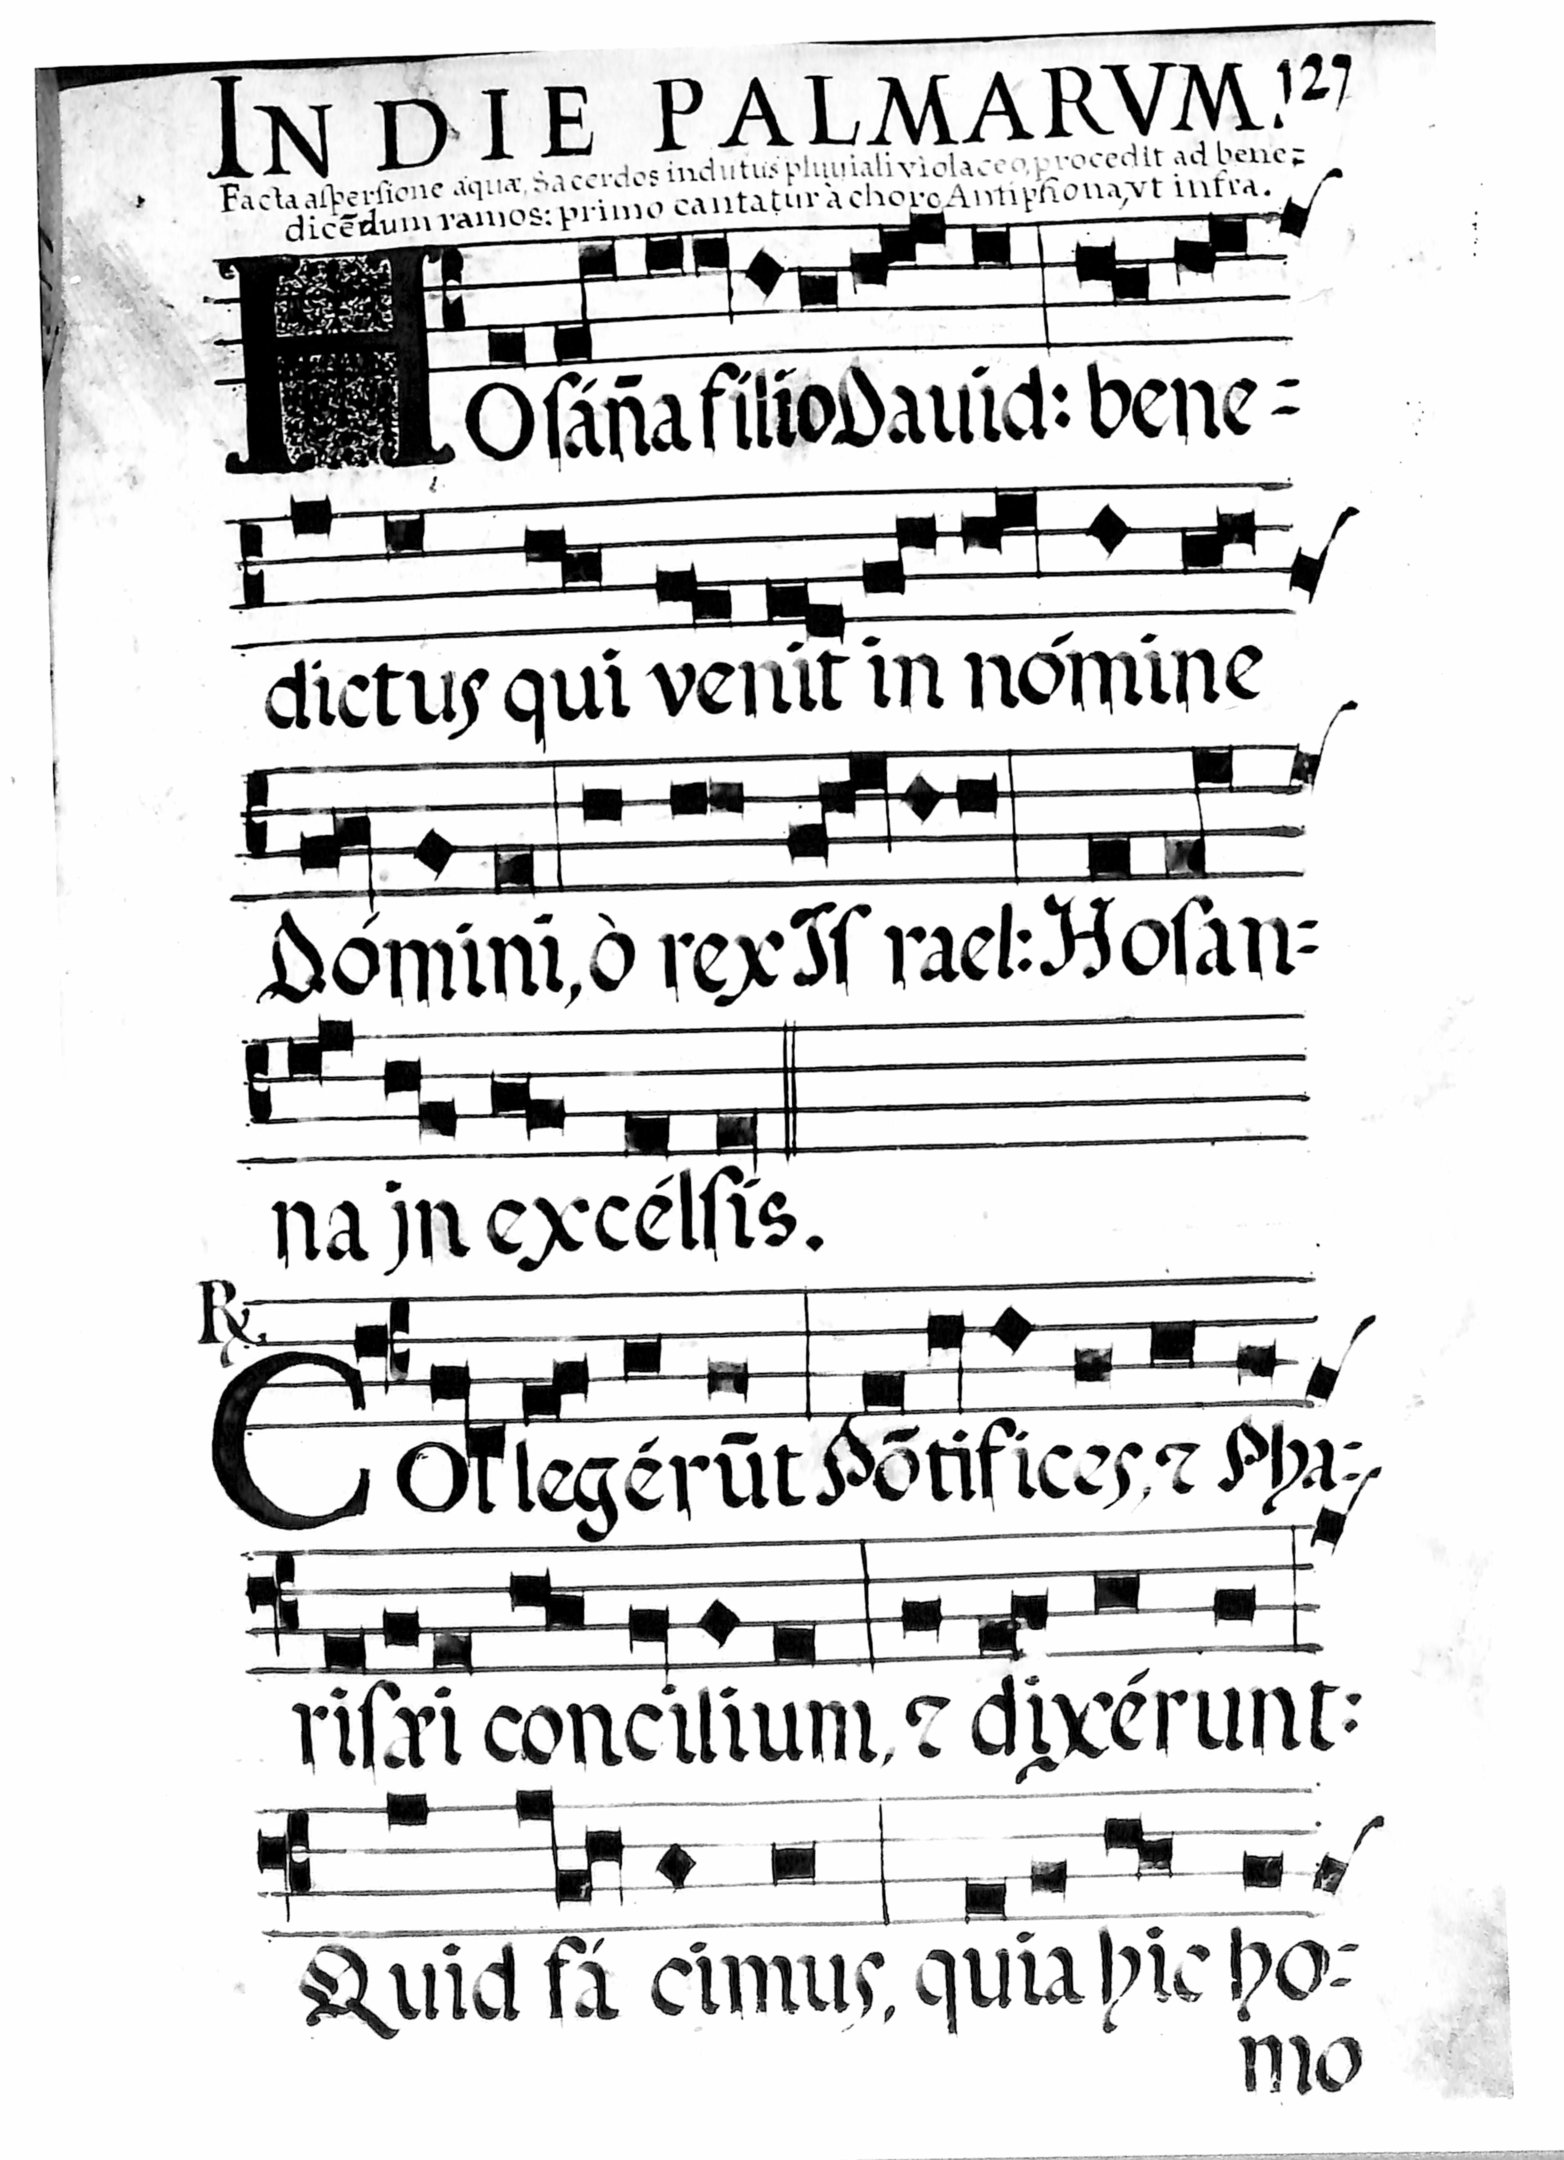 IN DIE PALMARVM. 127
Facta aſperſione aquæ, Sacerdos indutus pluuiali violaceo, procedit ad bene=
dicēdum ramos: primo cantatur à choro Antiphona, vt infra.
HOſán̄a filio Dauid: bene=
dictus qui venit in nómine
Dómini, ò rex Iſ rael: Hoſan=
na jn excélſis.
℞.
COllegérūt Pōtifices, ⁊ Pha=
riſæi concilium, ⁊ dixérunt:
Quid fá cimus, quia hic ho=
mo